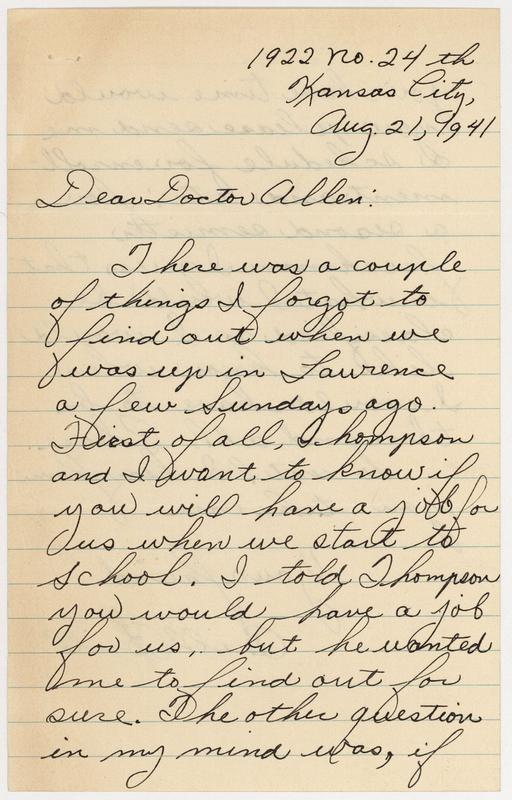 1922 No. 24 th
Kansas City,
Aug. 21, 1941
Dear Doctor Allen:
There was a couple
of things I forgot to
find out when we
was up in Lawrence
a few Sundays ago.
First of all, Thompson
and I want to know if
you will have a job for
us when we start to
school. I told Thompson
you would have a job
for us, but he wanted
me to find out for
sure. The other question
in my mind was, if